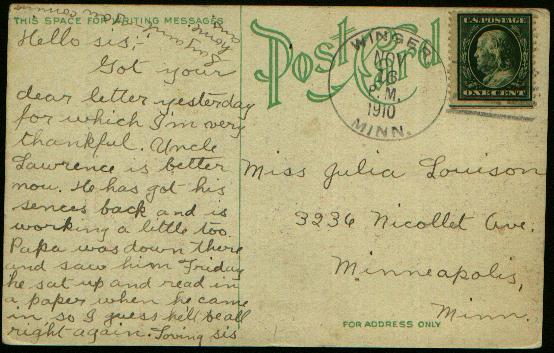 THIS SPACE FOR WRITING MESSAGES
Hello sis;
Got your
dear letter yesterday
for which I'm very
thankful. Uncle
Lawrence is better
now. He has got his
sences back and is
working a little too.
Papa was down there
and saw him Friday
he sat up and read in
a paper when he came
in, so I guess he'll be all
right again. Loving sis
Post Card
WINGER
NOV
16
P.M.
1910
MINN.
U.S. POSTAGE
ONE CENT
Miss Julia Louison
3236 Nicollet Ave.
Minneapolis,
Minn.
FOR ADDRESS ONLY